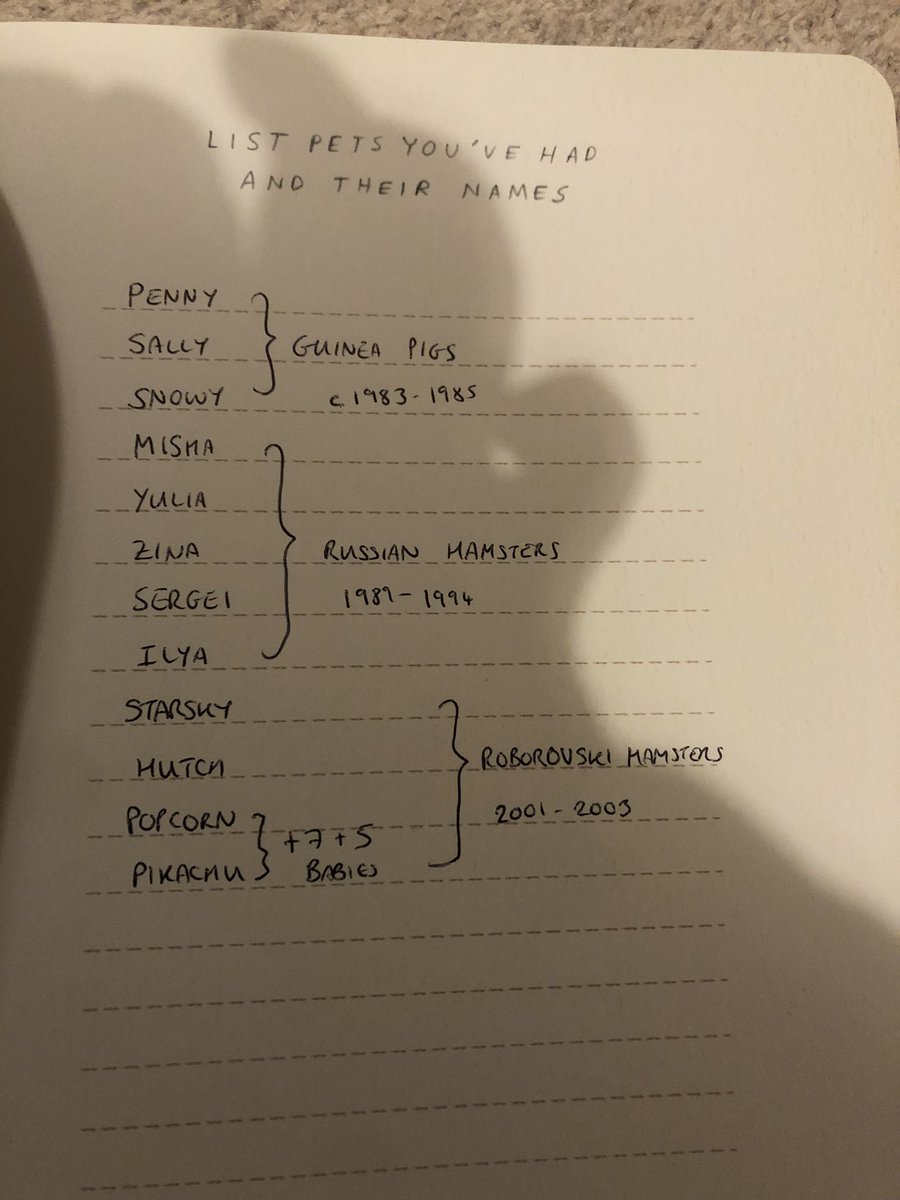 LIST PETS YOU'VE HAD
AND THEIR NAMES
PENNY
SALLY GUINEA PIGS
SNOWY c.1983-1985
MISHA
YULIA
ZINA RUSSIAN HAMSTERS
SERGEI 1989-1994
ILYA
STARSKY
HUTCH ROBOROVSKI HAMSTERS
POPCORN +7+5 2001-2003
PIKACHU BABIES